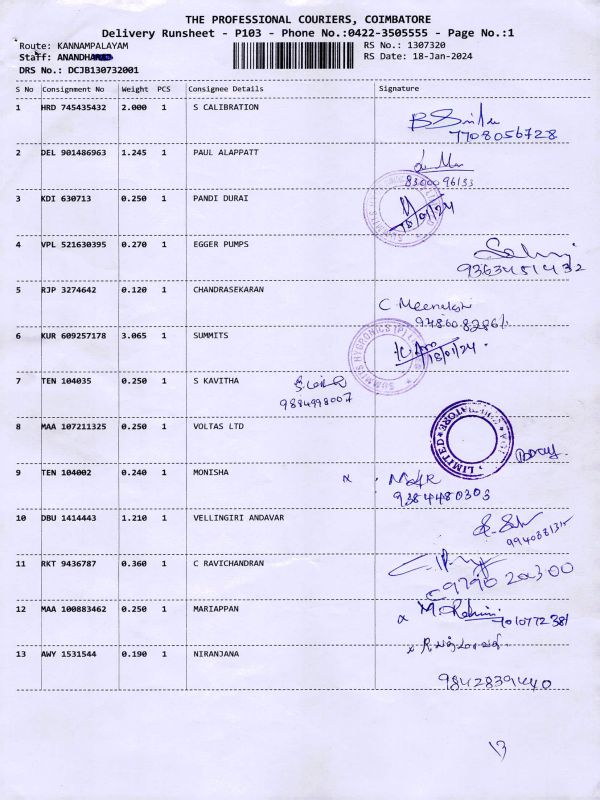 THE PROFESSIONAL COURIERS, COIMBATORE
Delivery Runsheet - P103 - Phone No.:0422-3505555 - Page No.:1
Route: KANNAMPALAYAM
RS No.: 1307320
Staff: ANANDHA
RS Date: 18-Jan-2024
DRS No.: DCJB130732001
S No Consignment No Weight PCS Consignee Details Signature
1 HRD 745435432 2.000 1 S CALIBRATION
7708056728
2 DEL 901486963 1.245 1 PAUL ALAPPATT
8300096133
3 KDI 630713 0.250 1 PANDI DURAI
18/01/24
4 VPL 521630395 0.270 1 EGGER PUMPS
9363451432
5 RJP 3274642 0.120 1 CHANDRASEKARAN
C Meenakshi
6 KUR 609257178 3.065 1 SUMMITS
18/01/24
SUMMITS HYGRONICS (P) L
7 TEN 104035 0.250 1 S KAVITHA
9884998007
8 MAA 107211325 0.250 1 VOLTAS LTD
LIMITED
9 TEN 104002 0.240 1 MONISHA x
9384480303
10 DBU 1414443 1.210 1 VELLINGIRI ANDAVAR
11 RKT 9436787 0.360 1 C RAVICHANDRAN
9790 200300
12 MAA 100883462 0.250 1 MARIAPPAN x
13 AWY 1531544 0.190 1 NIRANJANA
9842839440
13